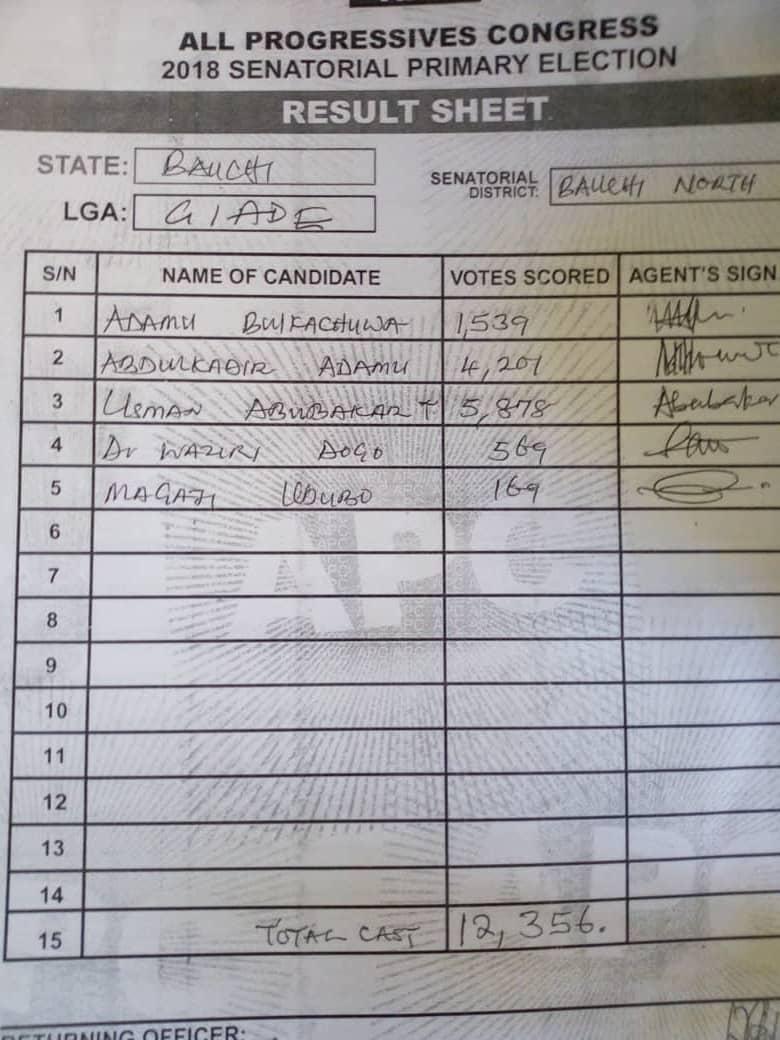 ALL PROGRESSIVES CONGRESS
2018 SENATORIAL PRIMARY ELECTION
RESULT SHEET
STATE: BAUCHI
SENATORIAL DISTRICT: BAUCHI NORTH
LGA: GIADE
S/N NAME OF CANDIDATE VOTES SCORED AGENT'S SIGN
1 ADAMU BULKACHUWA 1,539
2 ABDULKADIR ADAMU 4,201
3 USMAN ABUBAKAR T 5,878 Abubakar
4 Dr WAZIRI DOGO 569
5 MAGAJI UDUBO 169
6
7
8
9
10
11
12
13
14
15 TOTAL CAST 12,356.
APC
RETURNING OFFICER: